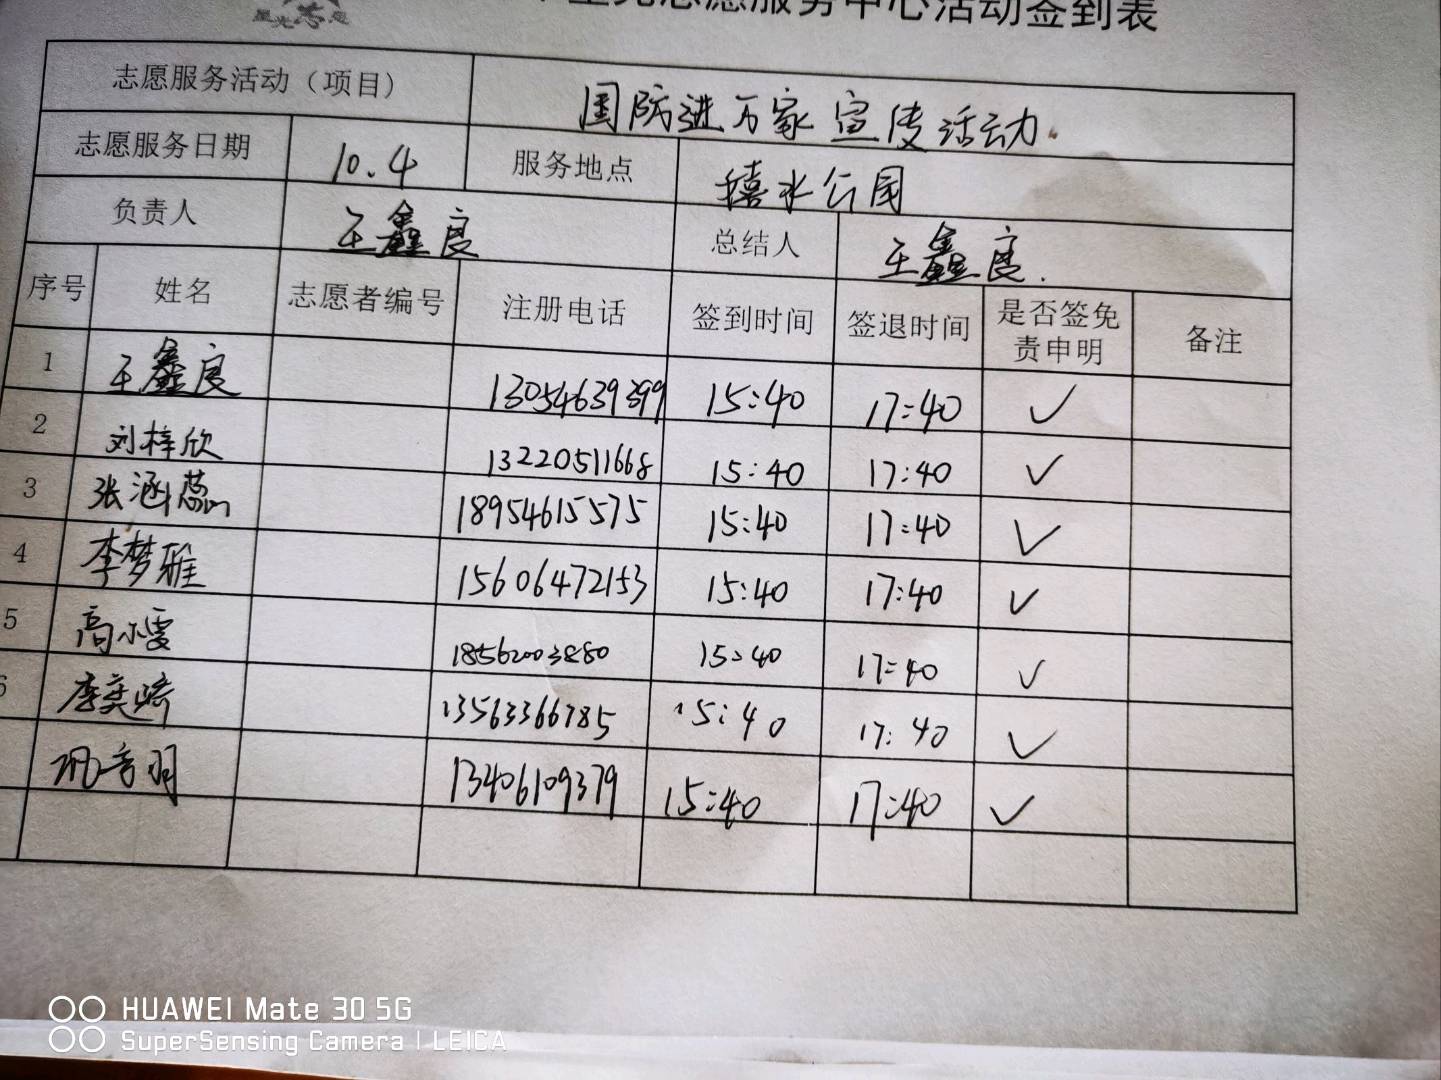 星光志愿
星光志愿服务中心活动签到表
志愿服务活动（项目） 国防进万家宣传活动.
志愿服务日期 10.4 服务地点 公园
负责人 王鑫良 总结人 王鑫良.
序号 姓名 志愿者编号 注册电话 签到时间 签退时间 是否签免责申明 备注
1 王鑫良 13054639399 15:40 17:40 ✓
2 刘梓欣 13220511668 15:40 17:40 ✓
3 张涵蕊 18954615575 15:40 17:40 ✓
4 李梦雅 15606472153 15:40 17:40 ✓
5 高小雯 18562003880 15:40 17:40 ✓
6 李奕崎 13563366785 15:40 17:40 ✓
13406109379 15:40 17:40 ✓
HUAWEI Mate 30 5G
SuperSensing Camera | LEICA